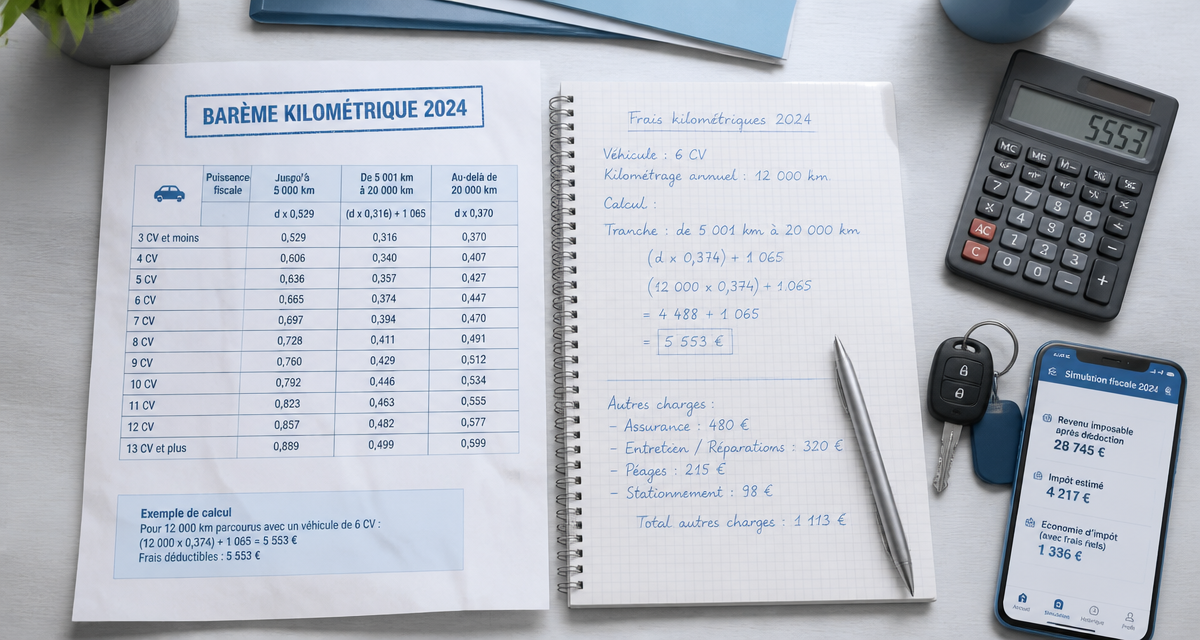 BARÈME KILOMÉTRIQUE 2024
Puissance fiscale
Jusqu'à 5 000 km
De 5 001 km à 20 000 km
Au-delà de 20 000 km
d x 0,529 (d x 0,316) + 1 065 d x 0,370
3 CV et moins 0,529 0,316 0,370
4 CV 0,606 0,340 0,407
5 CV 0,636 0,357 0,427
6 CV 0,665 0,374 0,447
7 CV 0,697 0,394 0,470
8 CV 0,728 0,411 0,491
9 CV 0,760 0,429 0,512
10 CV 0,792 0,446 0,534
11 CV 0,823 0,463 0,555
12 CV 0,857 0,482 0,577
13 CV et plus 0,889 0,499 0,599
Exemple de calcul
Pour 12 000 km parcourus avec un véhicule de 6 CV :
(12 000 x 0,374) + 1 065 = 5 553 €
Frais déductibles : 5 553 €
Frais kilométriques 2024
Véhicule : 6 CV
Kilométrage annuel : 12 000 km.
Calcul :
Tranche : de 5 001 km à 20 000 km
(d x 0,374) + 1 065
(12 000 x 0,374) + 1.065
= 4 488 + 1 065
= 5 553 €
Autres charges :
- Assurance : 480 €
- Entretien / Réparations : 320 €
- Péages : 215 €
- Stationnement : 98 €
Total autres charges : 1 113 €
5553
AC
C
Simulation fiscale 2024
Revenu imposable
après déduction
28 745 €
Impôt estimé
4 217 €
Economie d'impôt
(avec frais réels)
1 336 €
Accueil